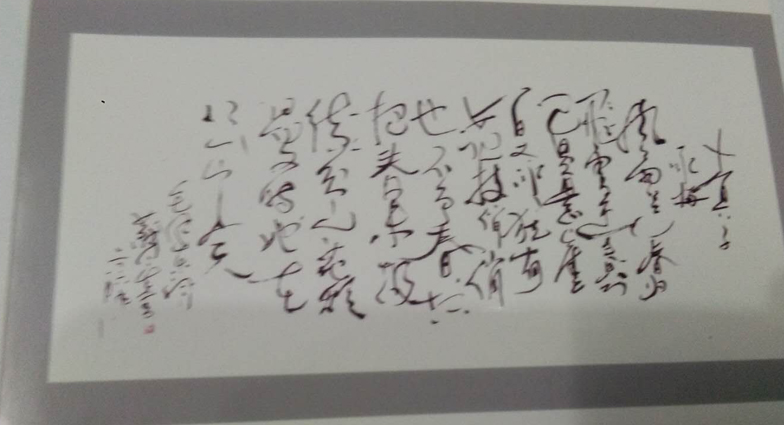 卜算子
咏梅
风雨送春归
飞雪迎春到
已是悬崖
百丈冰犹有
花枝俏俏
也不争春只
把春来报
待到山花烂
漫时她在
丛中笑
毛泽东词